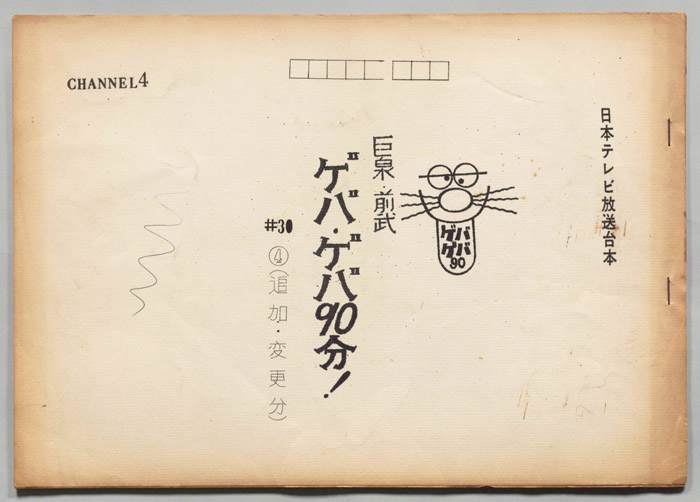 CHANNEL4
日本テレビ放送台本
巨泉・前武
ゲバ・ゲバ90分!
ゲバ
ゲバ
90
#30
④(追加・変更分)